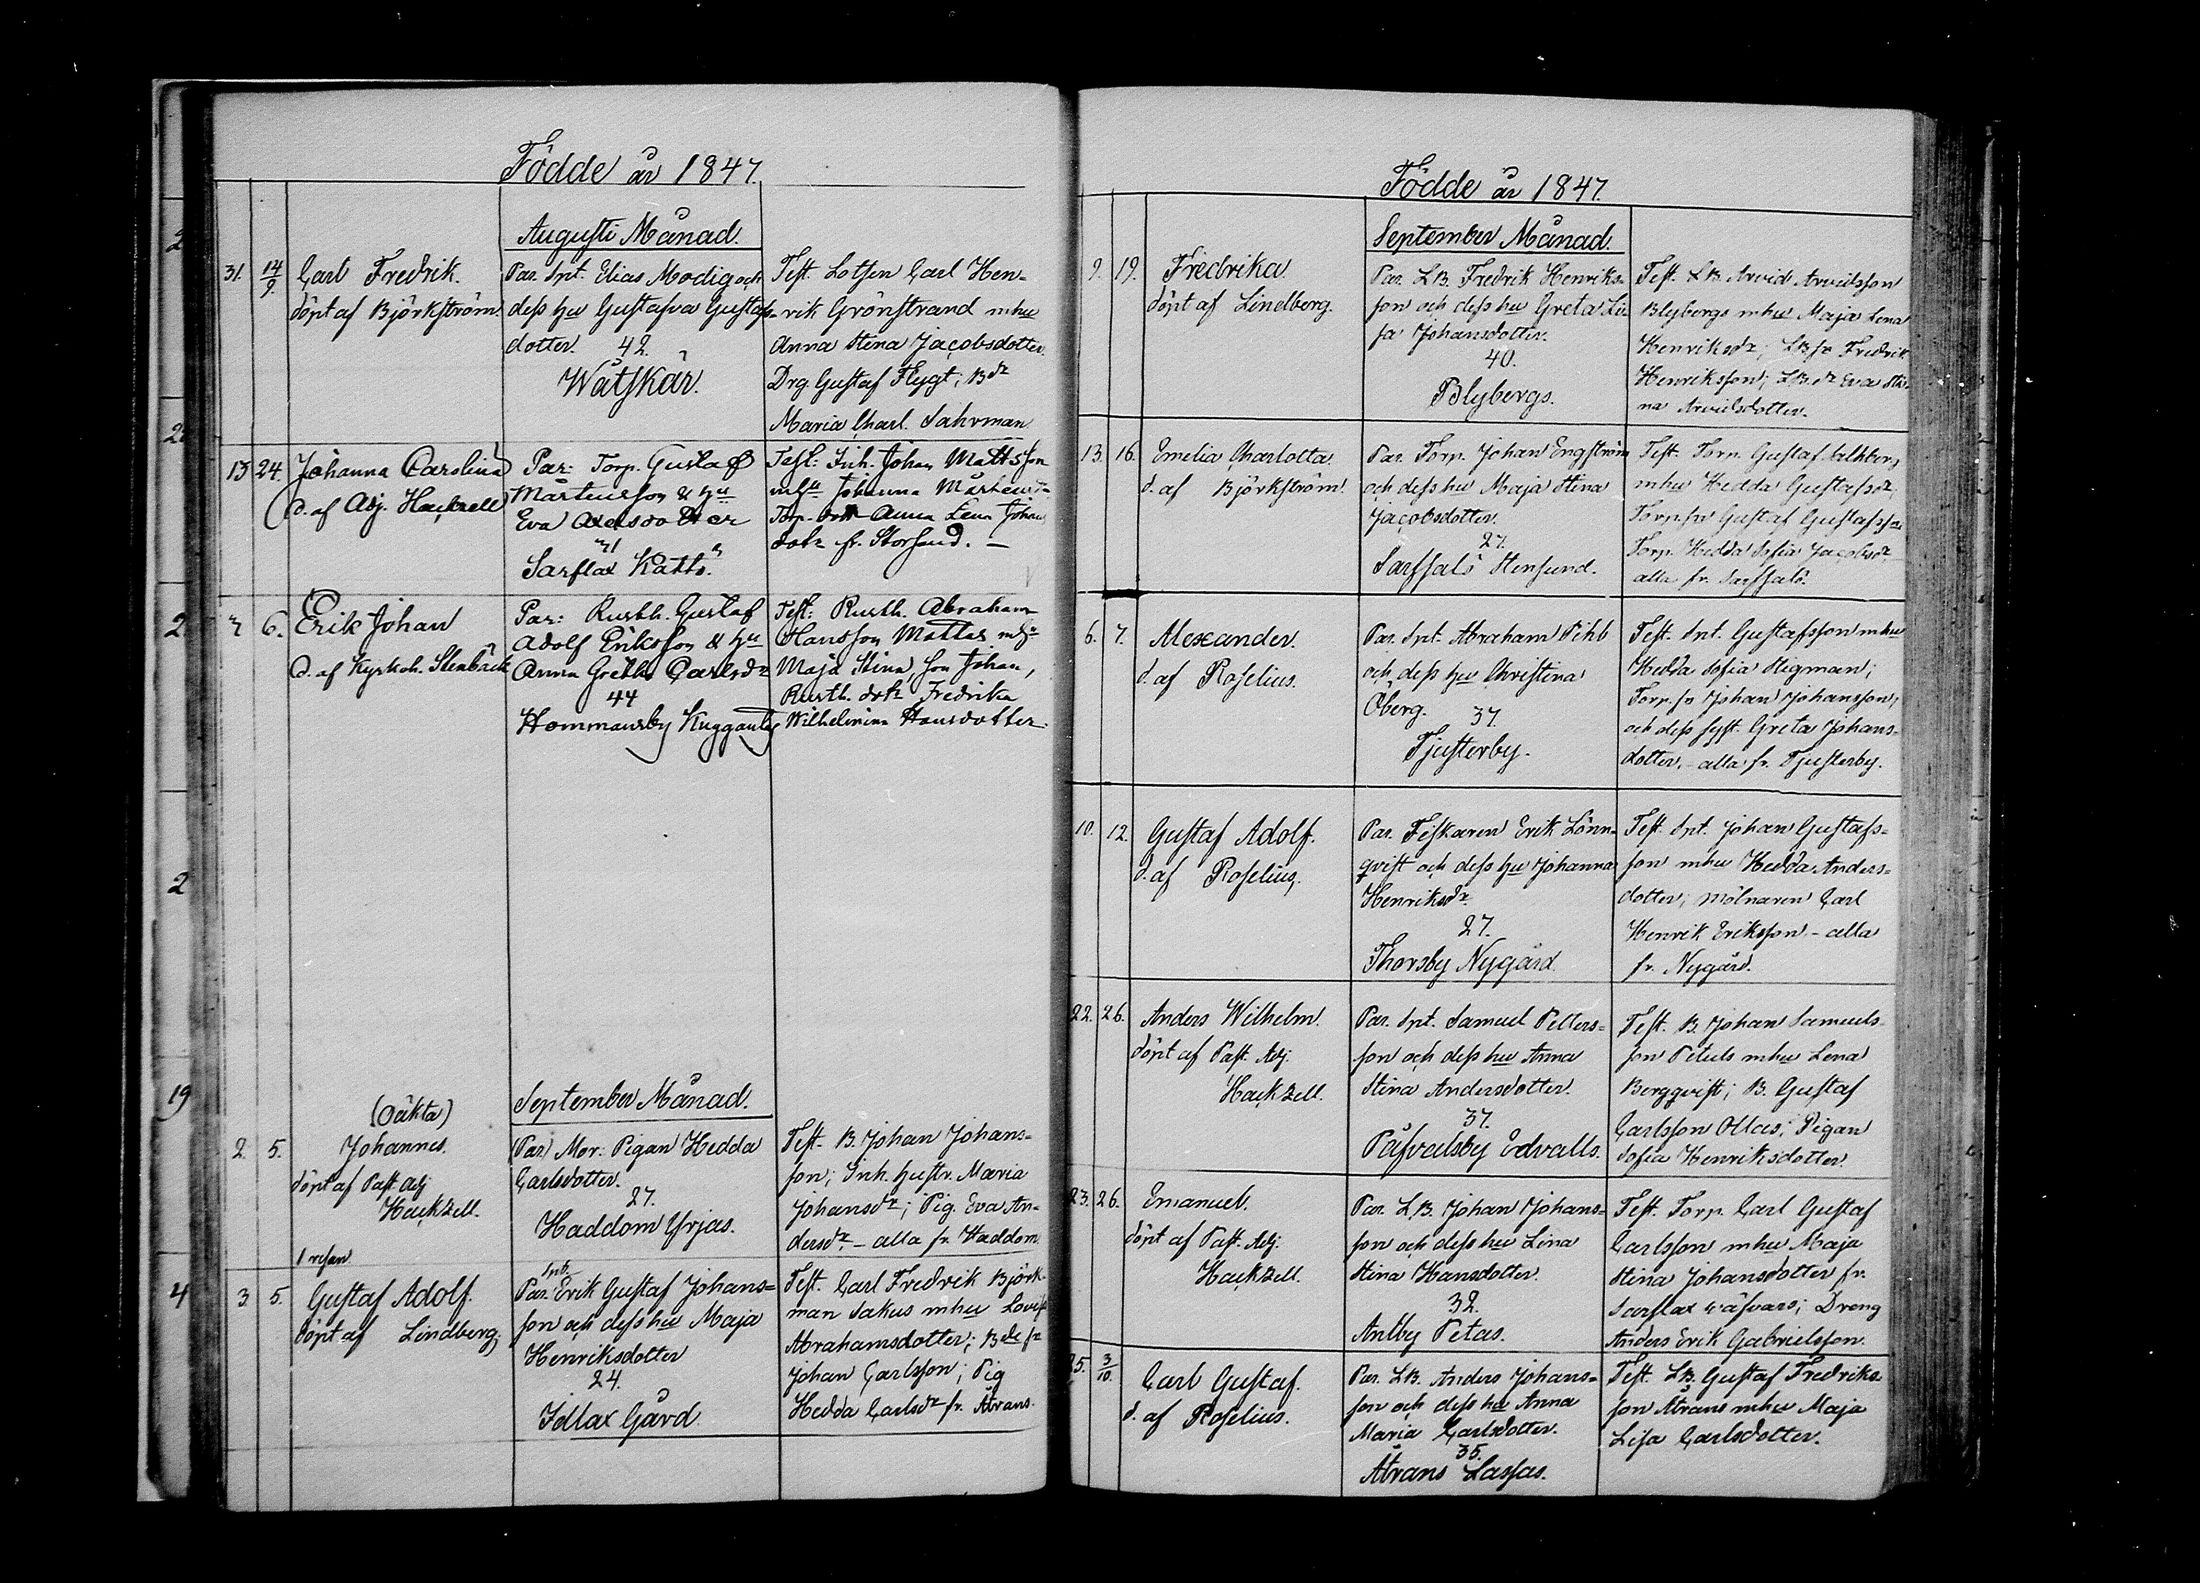 Födde år 1847.
Augusti Månad.
31. 14/9. Carl Fredrik.
döpt af Björkström
Par. Spt. Elias Modig och
dess hu Gustafva Gustafs-
dotter. 42.
Wåtskär.
Test. Lotsen Carl Hen-
rik Grönstrand mhu
Anna Stina Jacobsdotter.
Drg. Gustaf Flygt; Bdr
Maria Charl. Sahrman
13 24. Johanna Carolina
d. af Adj. Hackzell
Par: Torp. Gustaf
Mårtensson & hu
Eva Axelsdotter
Sarflax Kattö.
Test: Inh. Johan Mattsson
mhu Johanna Mårtensdr
Torp. dotr Anna Lena Johans
dotr fr. Storsund. —
7 6. Erik Johan
d. af Kyrkoh. Stenbäck
Par: Rusth. Gustaf
Adolf Eriksson & hu
Anna Greta Carlsdr
44
Hommansby Kuggantes
Test: Rusth. Abraham
Hansson Mattas mhu
Maja Stina, son Johan,
Rusth. dotr Fredrika
Wilhelmina Hansdotter.
September Månad.
(Oäkta)
2. 5. Johannes.
döpt af Past. Adj.
Hackzell.
(Par) Mor: Pigan Hedda
Carlsdotter.
27.
Haddom Yrjas.
Test. B. Johan Johans-
son; Inh. hustr. Maria
Johansdr; Pig. Eva An-
dersdr. – alla fr. Haddom
1 resan
3. 5. Gustaf Adolf.
döpt af Lindberg.
Par. Erik Gustaf Johans-
son och dess hu Maja
Henriksdotter
24.
Isllax Gård.
Test. Carl Fredrik Björk-
man Sakus mhu Lovisa
Abrahamsdotter; Bde sr
Johan Carlsson; Pig
Hedda Carlsdr fr. Åbrans.
Födde år 1847.
September Månad.
9. 19. Fredrika.
döpt af Lindberg.
Par. LB. Fredrik Henriks-
son och dess hu Greta Li-
sa Johansdotter.
40.
Blybergs.
Test. LB. Arvid Arvidsson
Blybergs mhu Maja Lena
Henriksdr; LB.sr Fredrik
Henriksson; LB.dr Eva Sti-
na Arvidsdotter.
13. 16. Emelia Charlotta.
d. af Björkström.
Par. Torp. Johan Engström
och dess hu Maja Stina
Jacobsdotter.
27.
Sarfsalö Stensund.
Test. Torp. Gustaf Ahlberg
mhu Hedda Gustafsdr,
Torp.sr Gustaf Gustafsson
Torp. Hedda Sofia Jacobsdr
alla fr. Sarfsalö.
6. 7. Alexander.
d. af Roselius.
Par. Spt. Abraham Pihl
och dess hu Christina
Öberg. 37.
Tjusterby.
Test. Spt. Gustafsson mhu
Hedda Sofia Stigman;
Torp.sr Johan Johansson,
och dess syst. Greta Johans-
dotter, – alla fr. Tjusterby.
10. 12. Gustaf Adolf.
d. af Roselius.
Par. Fiskaren Erik Lönn-
qvist och dess hu Johanna
Henriksdr.
27.
Thorsby Nygård.
Test. Spt. Johan Gustafs-
son mhu Hedda Anders-
dotter; mölnaren Carl
Henrik Eriksson – alla
fr. Nygård.
22. 26. Anders Wilhelm.
döpt af Past. Adj.
Hackzell.
Par. Spt. Samuel Petters-
son och dess hu Anna
Stina Andersdotter.
37.
Påfvalsby Edvalls.
Test. B. Johan Samuels-
son Petuls mhu Lena
Bergqvist; B. Gustaf
Carlsson Ollas; Pigan
Sofia Henriksdotter.
23. 26. Emanuel.
döpt af Past. Adj.
Hackzell.
Par. LB. Johan Johans-
son och dess hu Lina
Stina Hansdotter.
32.
Antby Petas.
Test. Torp. Carl Gustaf
Carlsson mhu Maja
Stina Johansdotter fr.
Sarflax Wäfvars; Dreng
Anders Erik Gabrielsson.
25. 3/10. Carl Gustaf.
d. af Roselius.
Par. LB. Anders Johans-
son och dess hu Anna
Maria Carlsdotter.
35.
Åbrans Lassas.
Test. LB. Gustaf Fredriks-
son Åbrans mhu Maja
Lisa Carlsdotter.